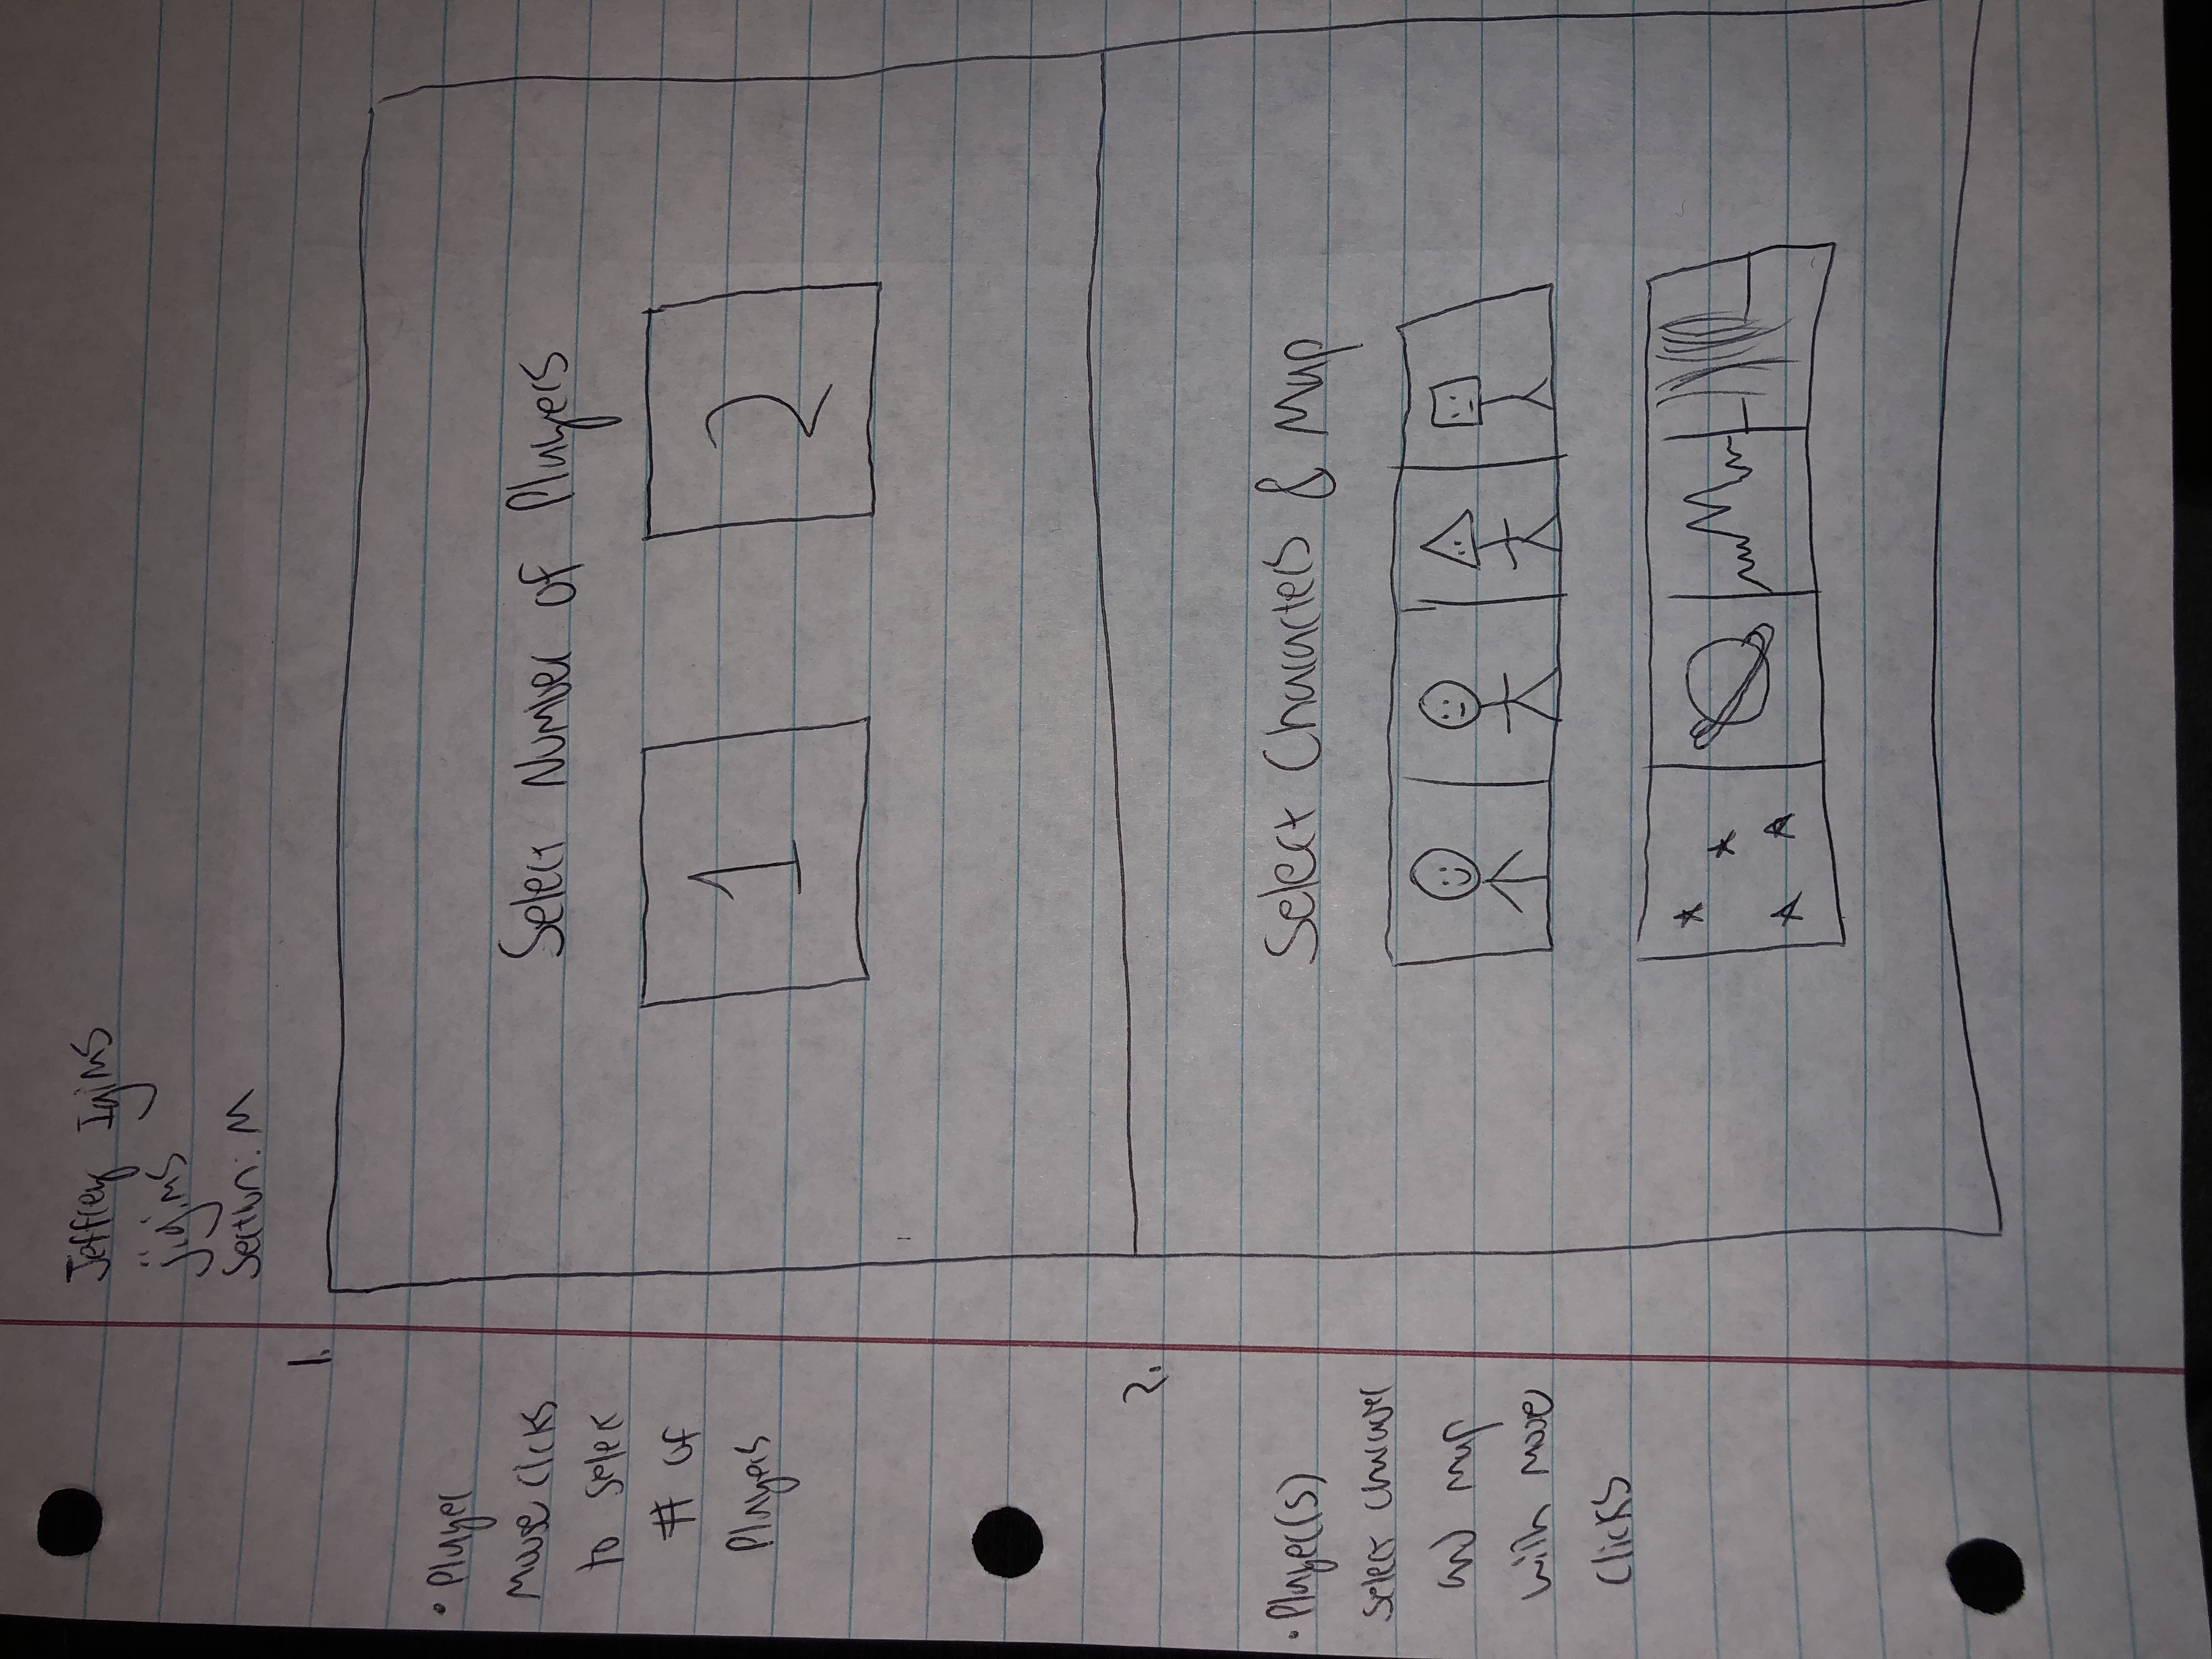 Jeffrey Igims
jigims
Section: M
1.
• Player
Mouse clicks
to select
# of
Players
Select Number of Players
1 2
2.
• Player(s)
select character
and map
with mouse
clicks
Select Characters & Map